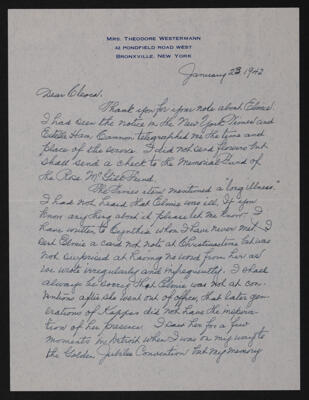 MRS. THEODORE WESTERMANN
42 PONDFIELD ROAD WEST
BRONXVILLE, NEW YORK
January 23 1942
Dear Cleora.
Thank you for your note about Elmie.
I had seen the notice in the New York Times and
Estelle Ham Cannon telegraphed me the time and
place of the service. I did not send flowers but
shall send a check to the Memorial Fund of
the Rose McGill Fund.
The Times item mentioned a "long illness."
I had not heard that Elmie was ill. If you
know anything about it please let me know. I
have written to Cynthia whom I have never met. I
sent Elmie a card not note at Christmastime but was
not surprised at having no word from her as
we wrote irregularly and infrequently. I shall
always be sorry that Elmie was not at con-
ventions after she went out of office, that later gen-
erations of Kappas did not have the inspira-
tion of her presence. I saw her for a few
moments in Detroit when I was on my way to
the Golden Jubilee Convention but my memory